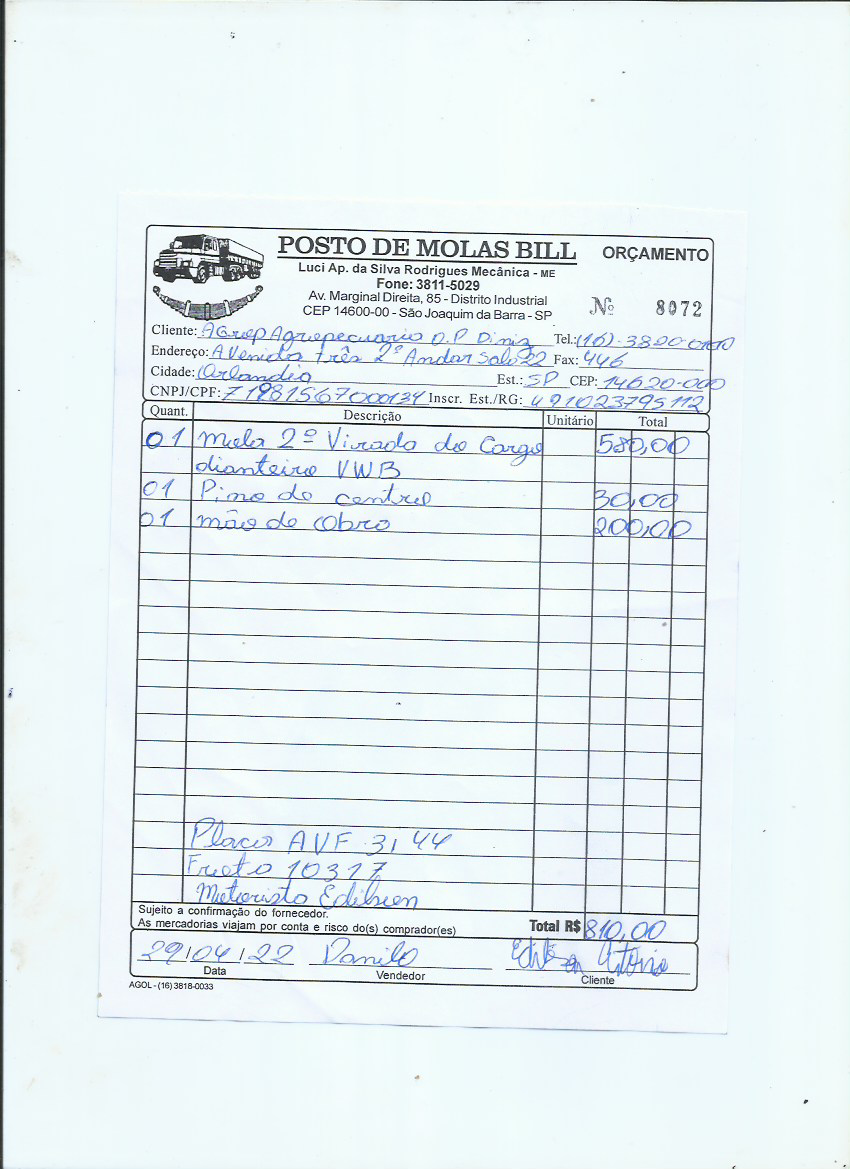 POSTO DE MOLAS BILL ORÇAMENTO
Luci Ap. da Silva Rodrigues Mecânica - ME
Fone: 3811-5029
Av. Marginal Direita, 85 - Distrito Industrial
CEP 14600-00 - São Joaquim da Barra - SP
Nº 8072
Cliente: AGrep Agropecuario O.P Diniz Tel.: (16). 3820-0100
Endereço: Avenida três 2º Andar Sala 22 Fax: 446
Cidade: Orlandia Est.: SP CEP: 14620-000
CNPJ/CPF: 71981567000134 Inscr. Est./RG: 491023795112
Quant. Descrição Unitário Total
01 Mola 2º Virada do Cargo 580,00
dianteiro VWB
01 Pino de centro 30,00
01 mão de Obra 200,00
Placa AVF 3144
Frota 10317
Motorista Edilson
Sujeito a confirmação do fornecedor.
As mercadorias viajam por conta e risco do(s) comprador(es) Total R$ 810,00
29/04/22 Danilo Antonio
Data Vendedor Cliente
AGOL - (16) 3818-0033